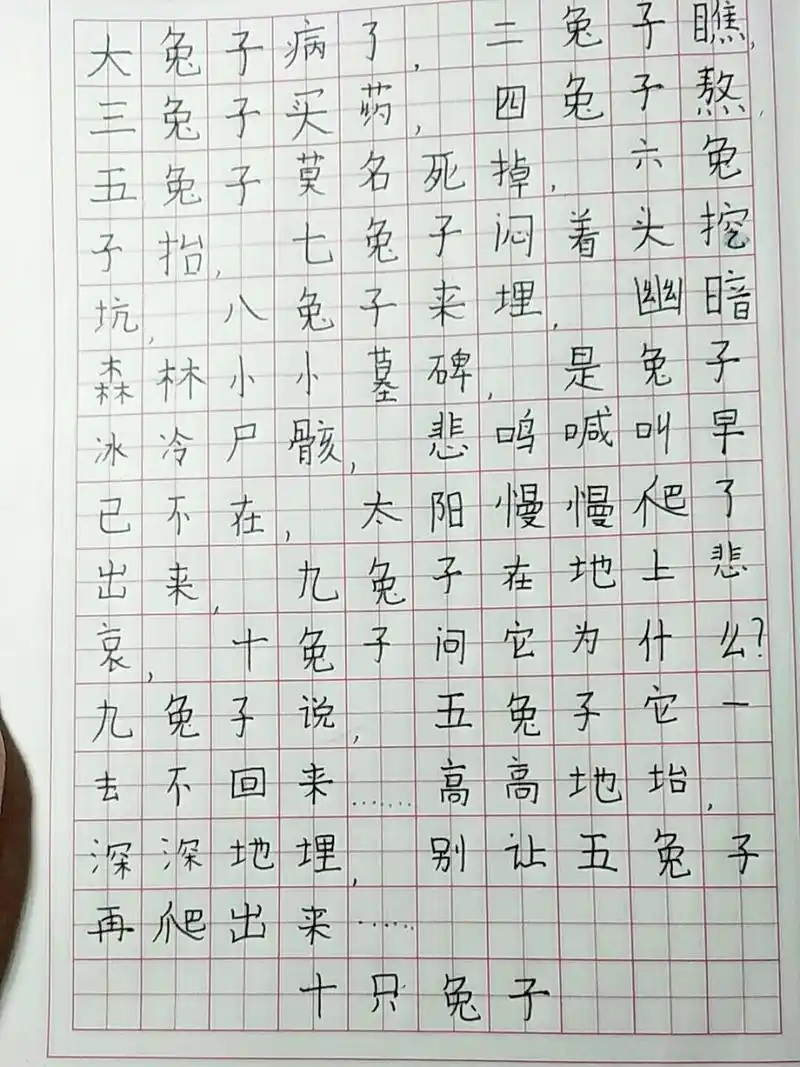 大兔子病了，二兔子瞧，
三兔子买药，四兔子熬，
五兔子莫名死掉，六兔
子抬，七兔子闷着头挖
坑，八兔子来埋，幽暗
森林小小墓碑，是兔子
冰冷尸骸，悲鸣喊叫早
已不在，太阳慢慢爬了
出来，九兔子在地上悲
哀，十兔子问它为什么？
九兔子说，五兔子它一
去不回来……高高地抬，
深深地埋，别让五兔子
再爬出来……
十只兔子